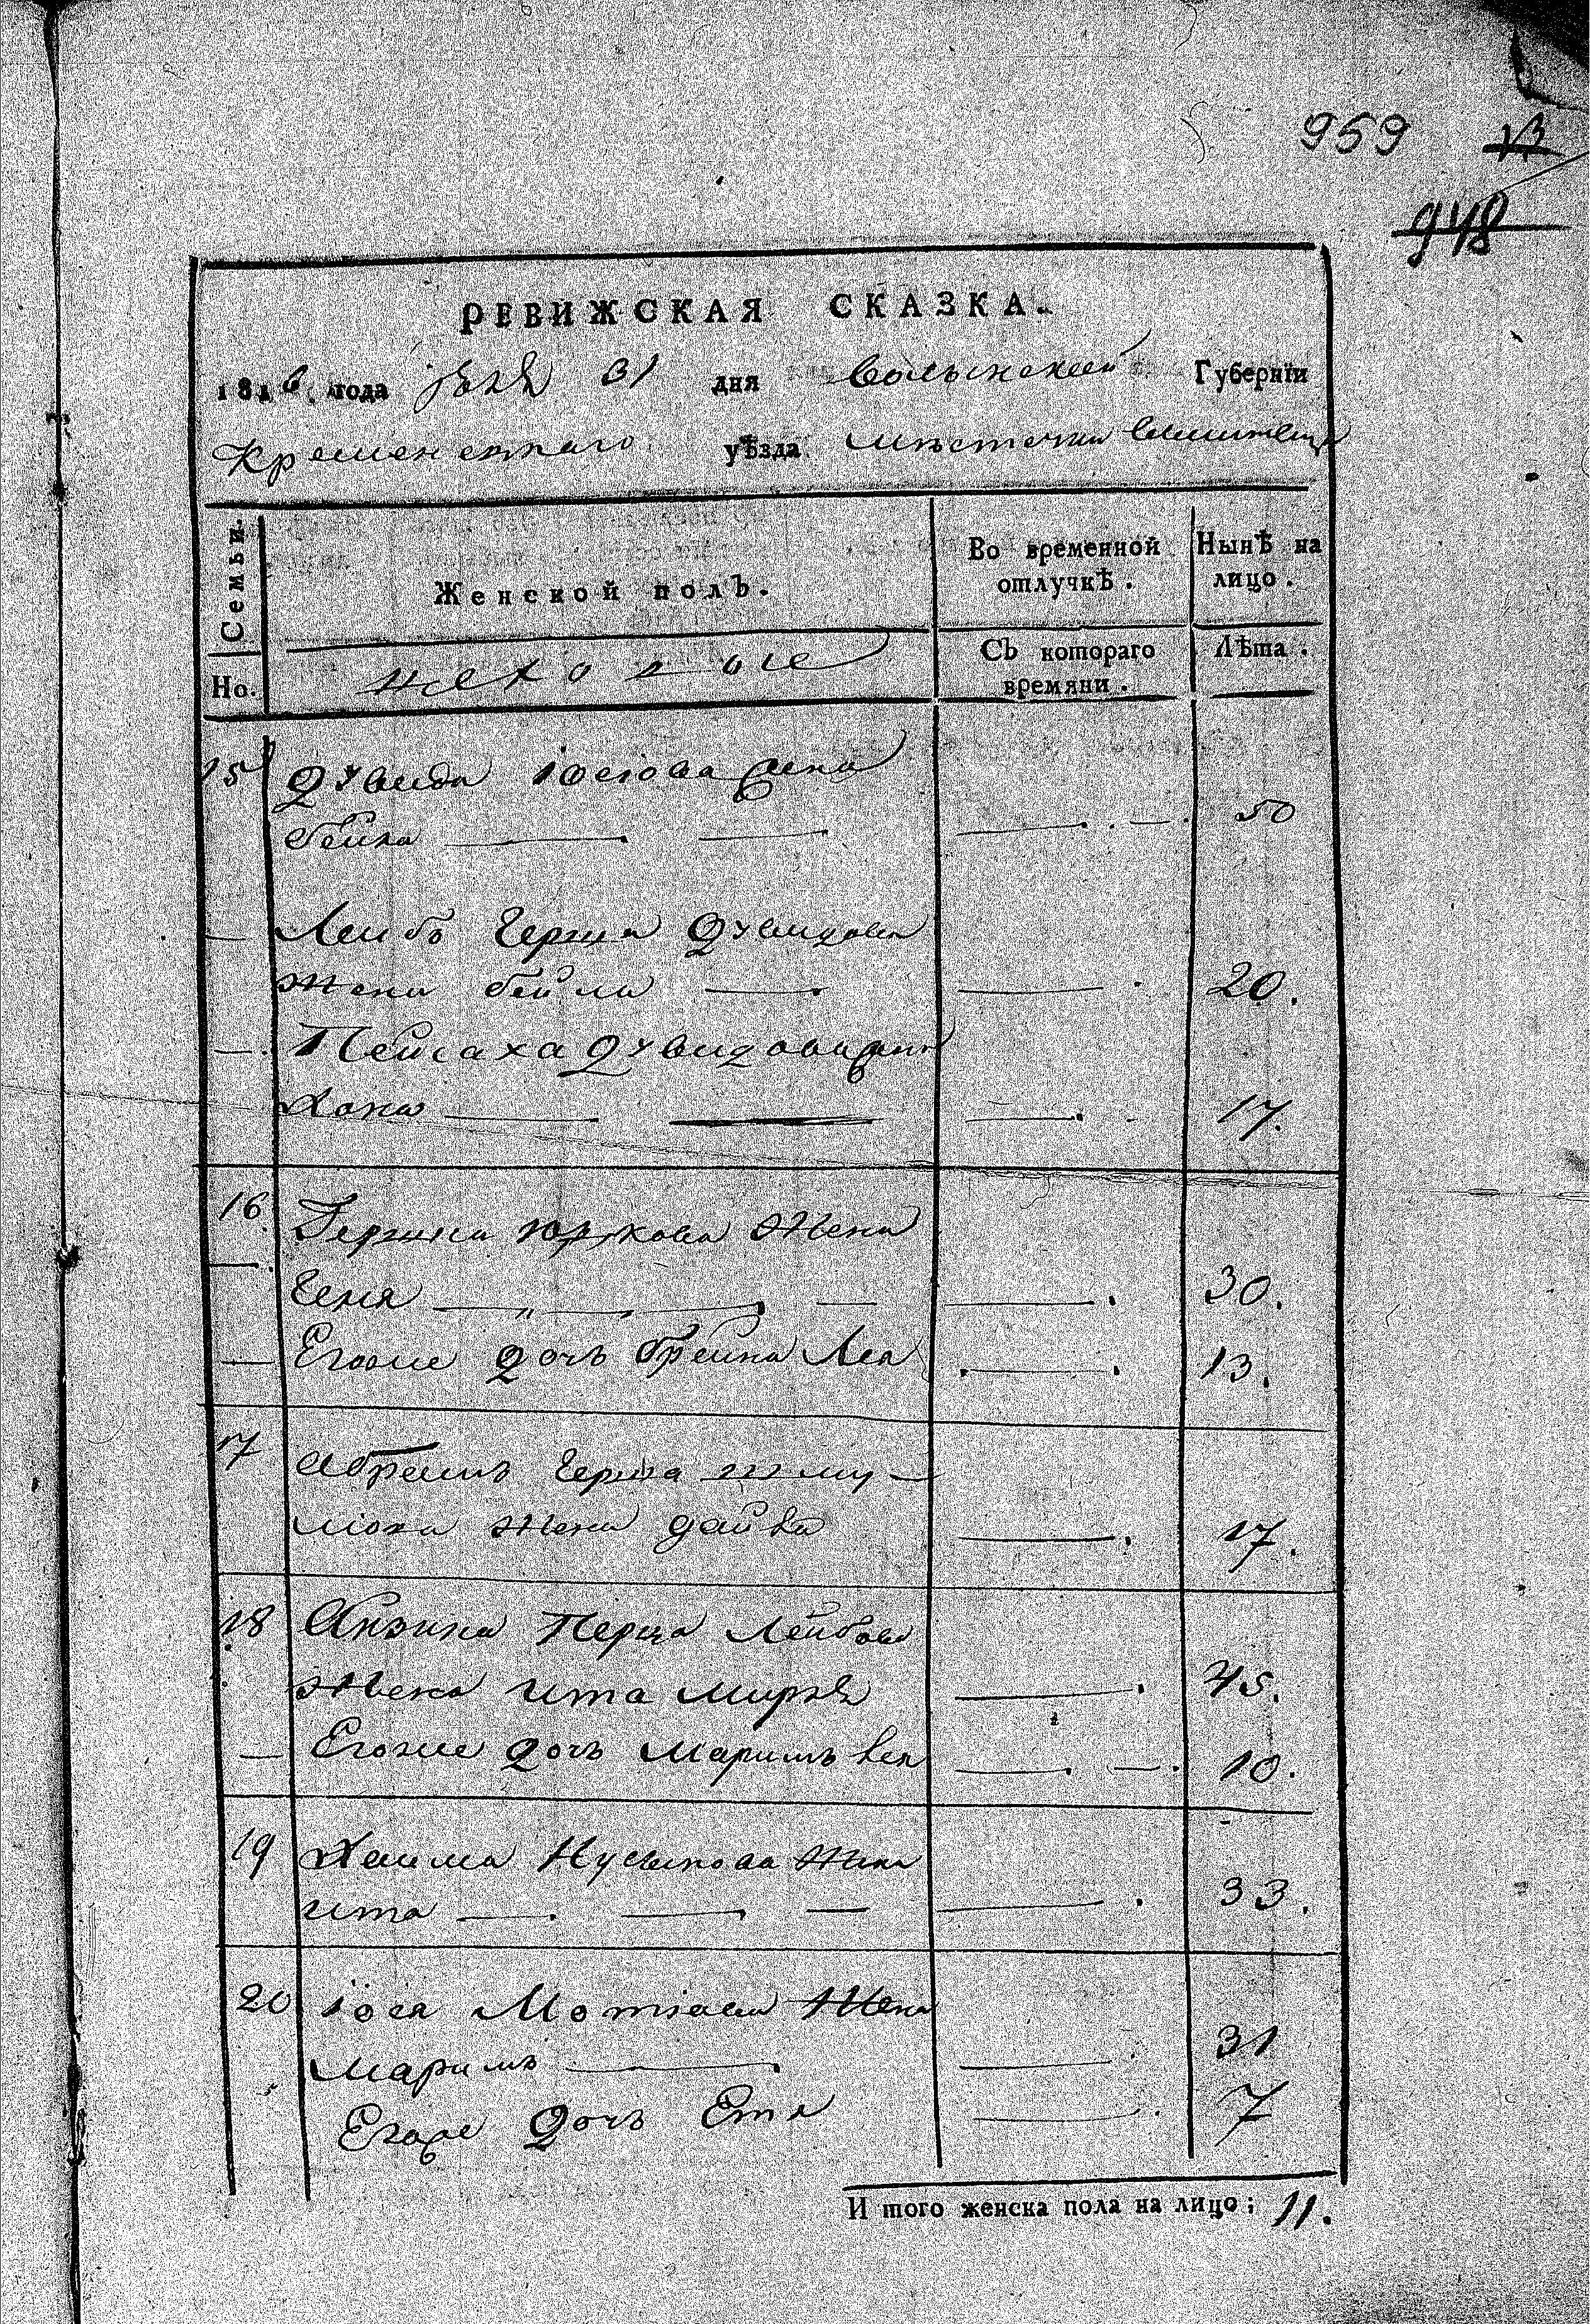 959 13
948
РЕВИЖСКАЯ СКАЗКА.
1816 года Юля 31 дня Волынской Губерніи
Кременецкаго уѣзда Мѣстечка
Семьи. Женской полъ. Во временной отлучкѣ. Нынѣ на лицо.
Но. Съ котораго времяни. Лѣта.
15 Дувида Іосiова жена
бейла 50
Лейбъ Герша Дувидова
жена бейла 20.
Пейсаха Дувидова жена
Хана 17.
16. Гершка Юркова жена
Геня 30.
Егоже дочь брейна Лея 13.
17 Абрамъ Герша Шму-
лiока жена 17.
18 Айзика Перца Лейбова
жена ита 45.
Егоже дочь Маримъ 10.
19 Хаима Нусынова жена
ита 33.
20 Іося Мотiова жена
Маримъ 31
Егоже дочь Етя 7
И того женска пола на лицо; 11.